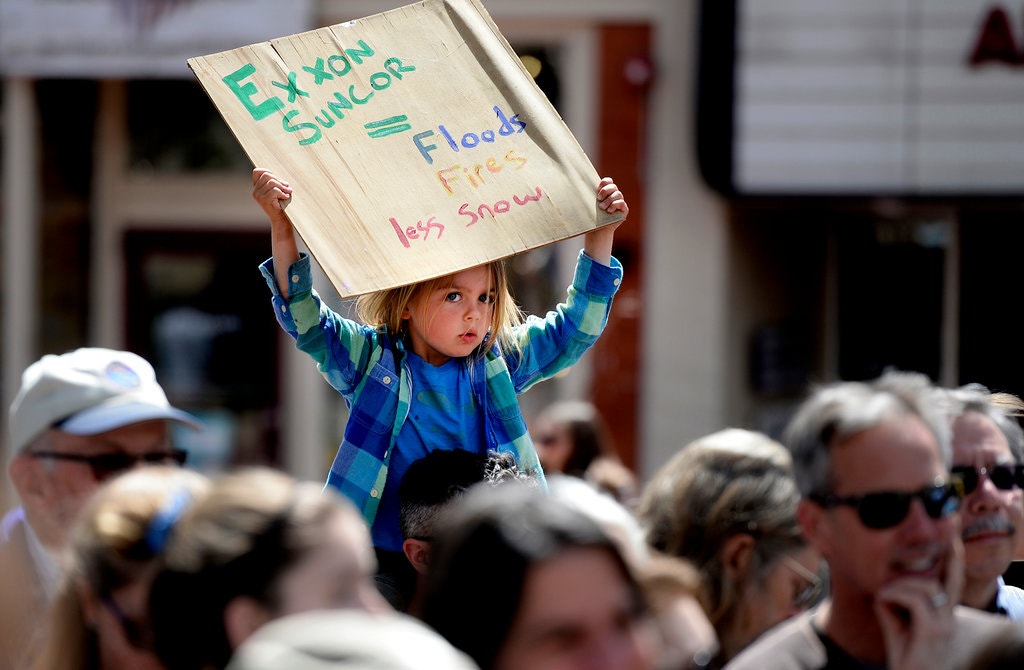 Exxon
Suncor
= Floods
Fires
less snow